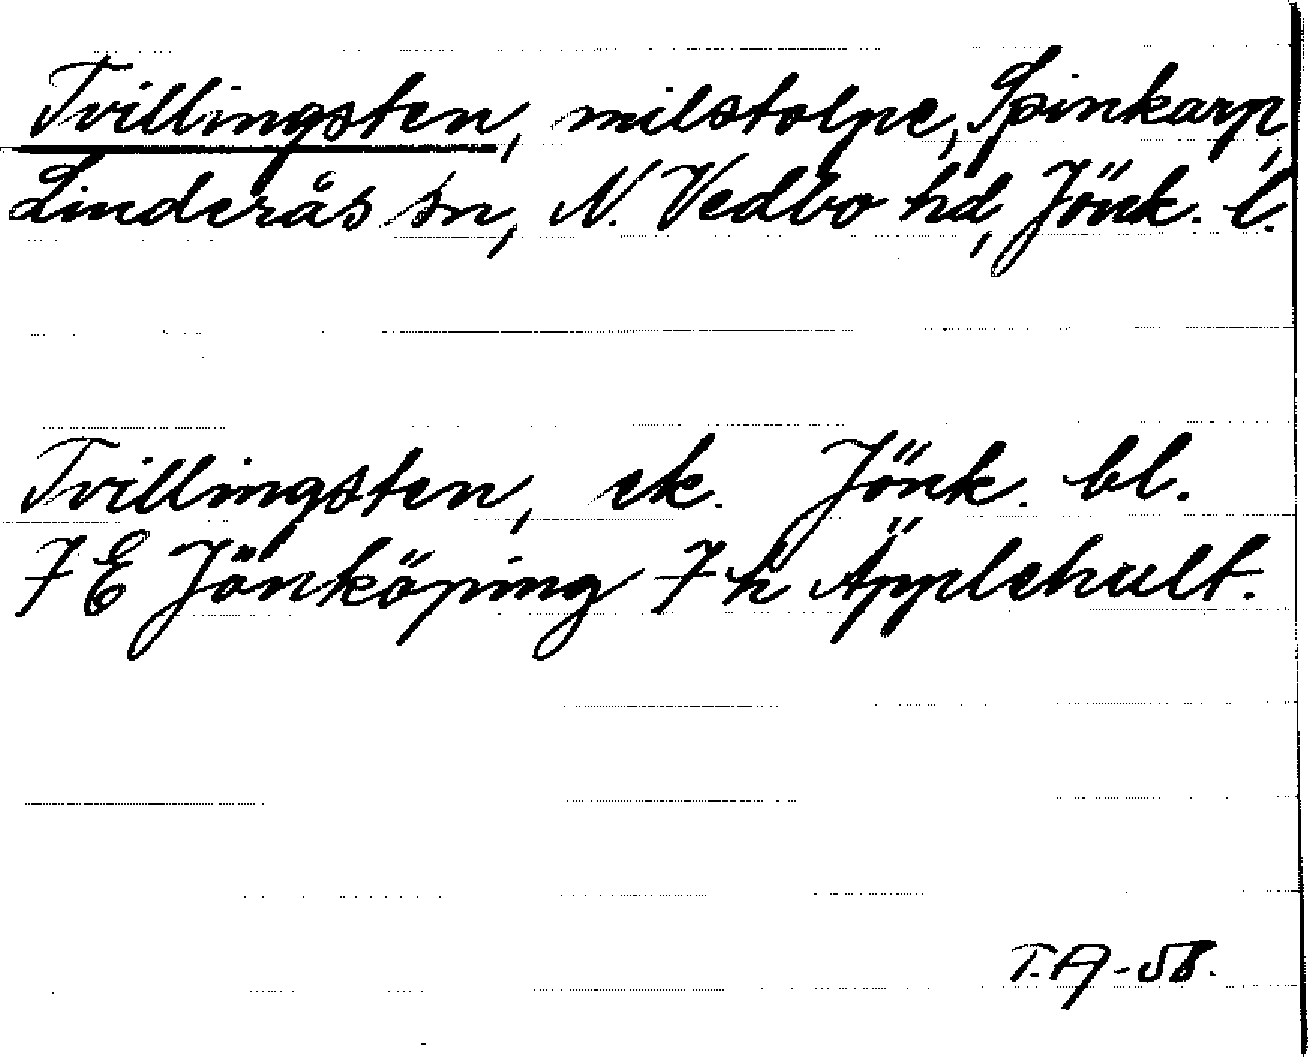 Tvillingsten, milstolpe, Spinkarp,
Linderås sn, N. Vedbo hd, Jönk. l.
Tvillingsten, ek. Jönk. bl.
7 E Jönköping 7 h Äpplehult.
T.A-58.